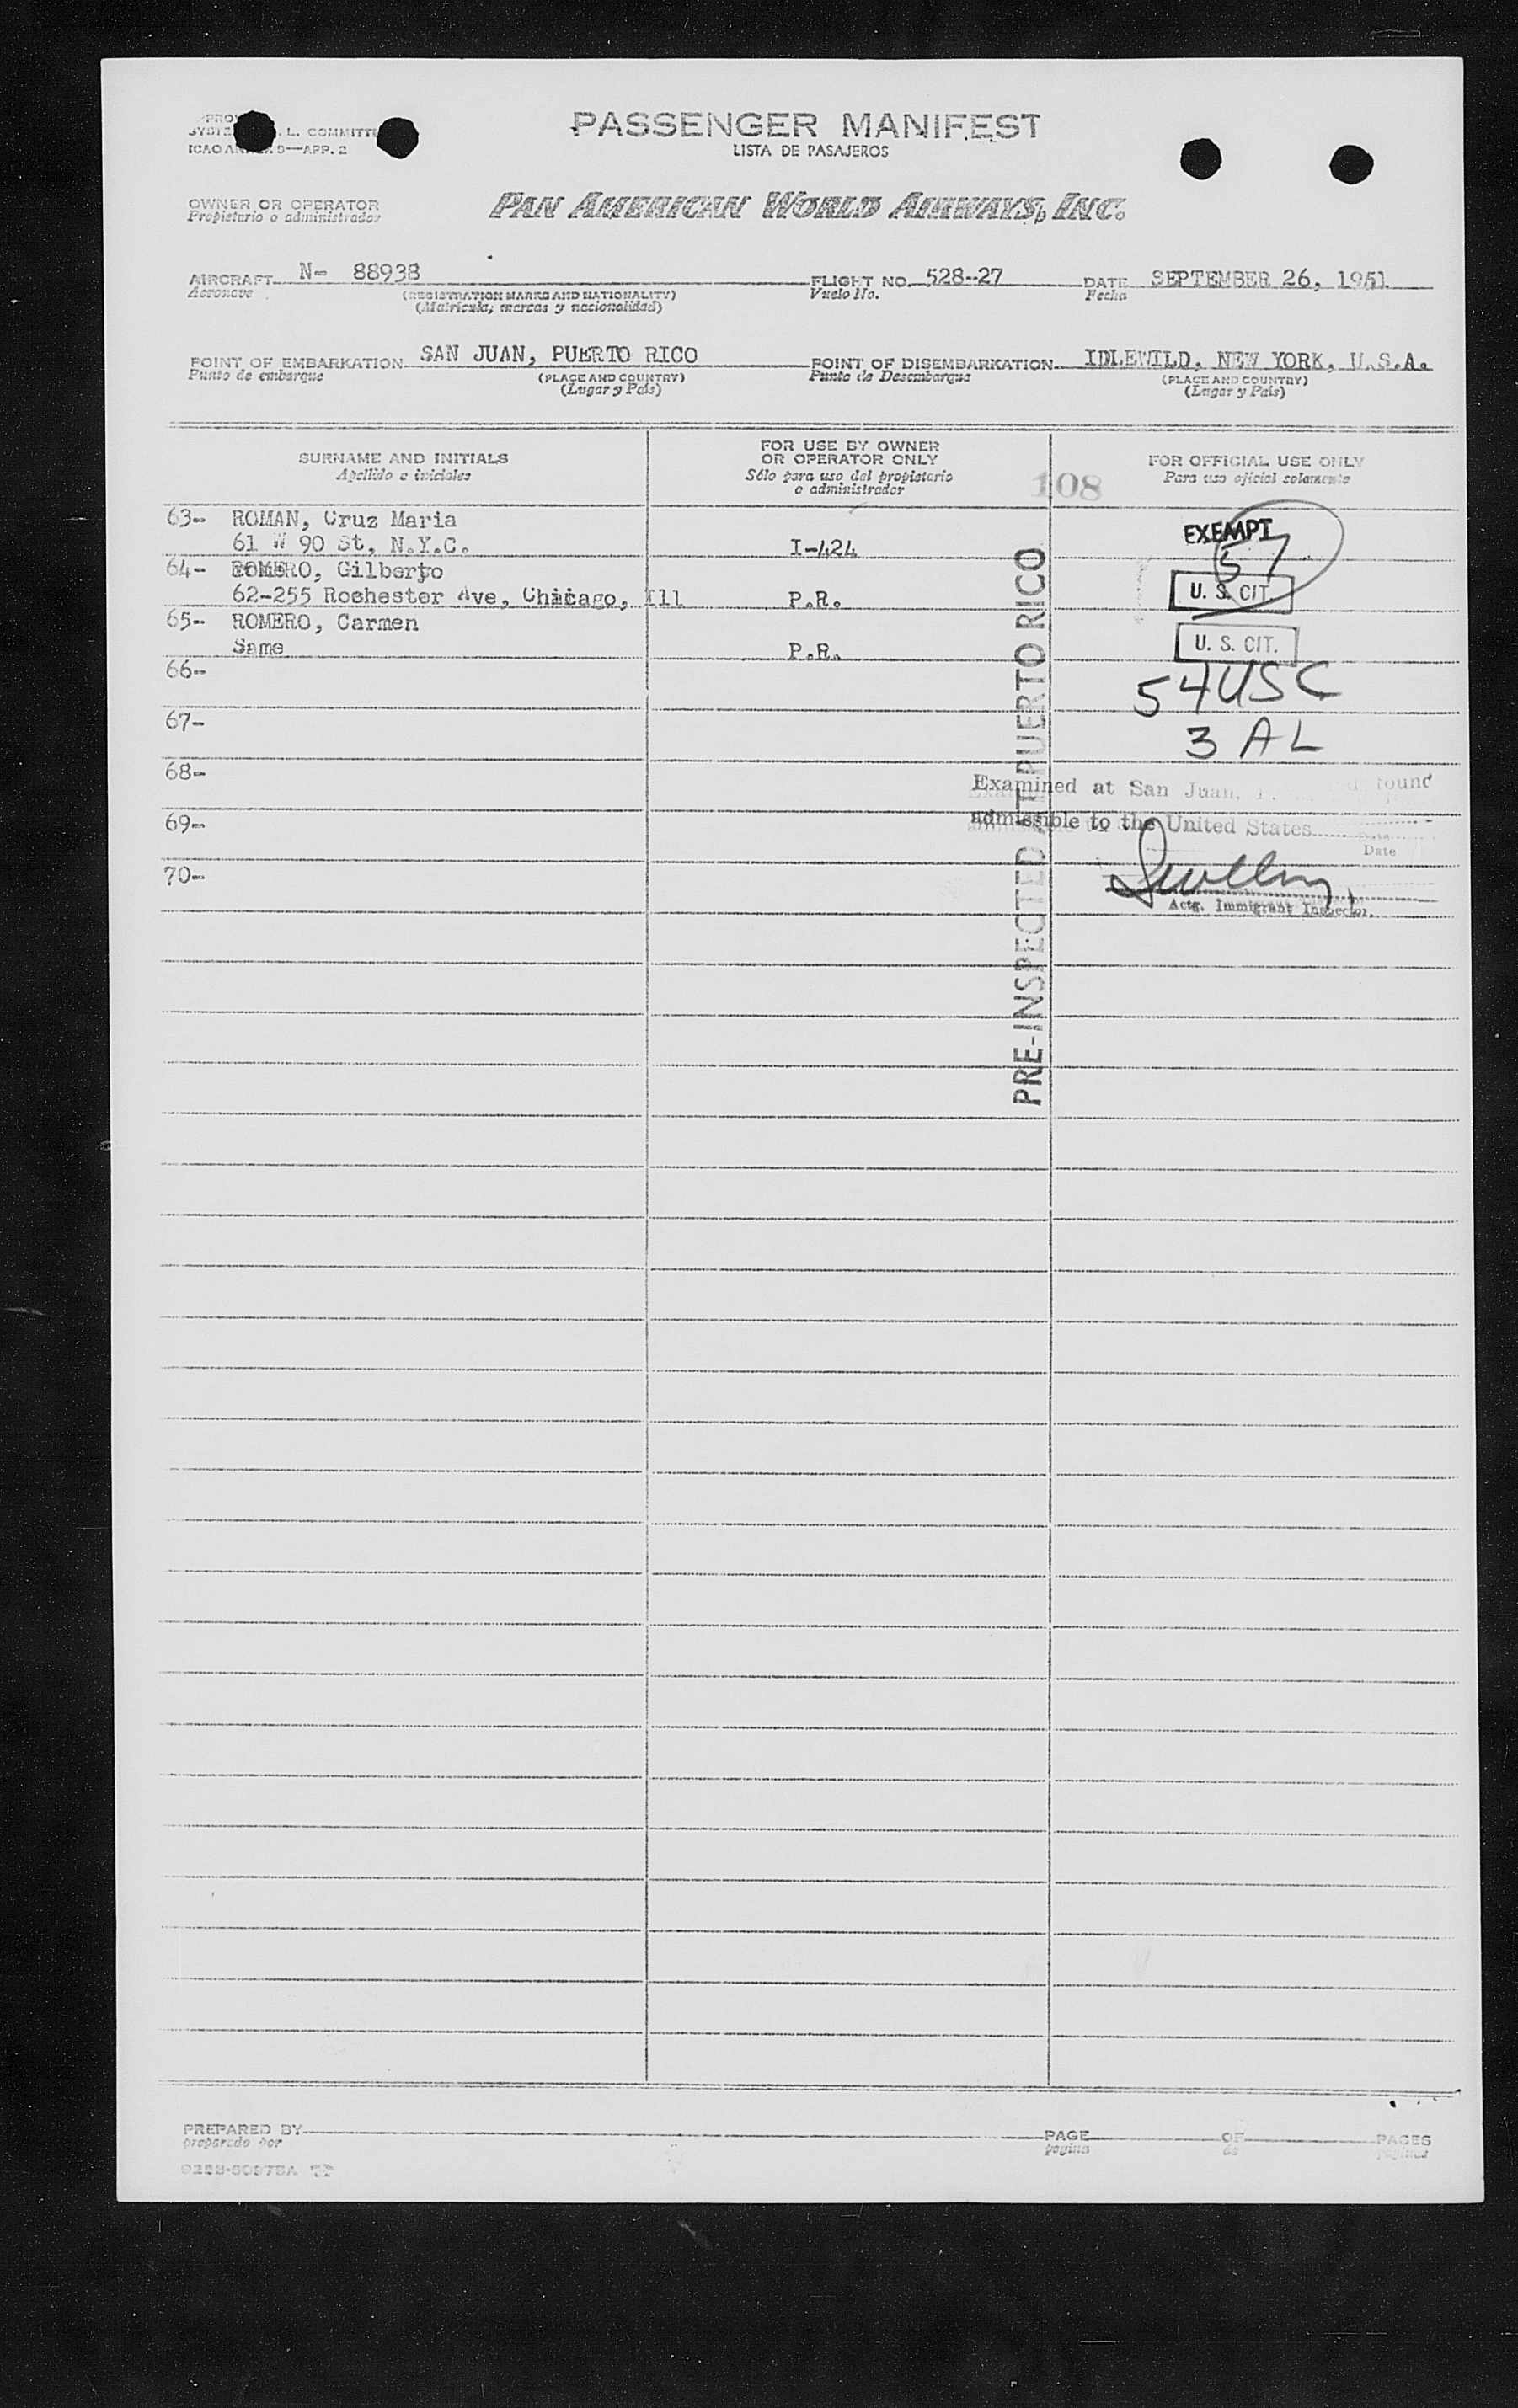 PASSENGER MANIFEST
LISTA DE PASAJEROS
L. COMMITT
ICAO ANNEX 9—APP. 2
OWNER OR OPERATOR
Propietario o administrador
PAN AMERICAN WORLD AIRWAYS, INC.
AIRCRAFT N- 88938 FLIGHT NO. 528--27 DATE SEPTEMBER 26, 1951
Aeronave (REGISTRATION MARKS AND NATIONALITY) Vuelo No. Fecha
(Matricula; marcas y nacionalidad)
POINT OF EMBARKATION SAN JUAN, PUERTO RICO POINT OF DISEMBARKATION IDLEWILD, NEW YORK, U.S.A.
Punto de embarque (PLACE AND COUNTRY) Punto de Desembarque (PLACE AND COUNTRY)
(Lugar y País) (Lugar y País)
SURNAME AND INITIALS FOR USE BY OWNER OR OPERATOR ONLY FOR OFFICIAL USE ONLY
Apellido e iniciales Sólo para uso del propietario o administrador Para uso oficial solamente
108
63- ROMAN, Cruz Maria EXEMPT
61 W 90 St, N.Y.C. I-424 57
64- ROMERO, Gilberto
62-255 Rochester Ave, Chicago, Ill P.R. U. S. CIT.
65- ROMERO, Carmen
Same P.R. U. S. CIT.
66- 54 USC
67- 3 AL
68-
Examined at San Juan, P. found
69- admissible to the United States
Date
70-
Actg. Immigrant Inspector.
PRE-INSPECTED AT PUERTO RICO
PREPARED BY PAGE OF PAGES
preparado por pagina de paginas